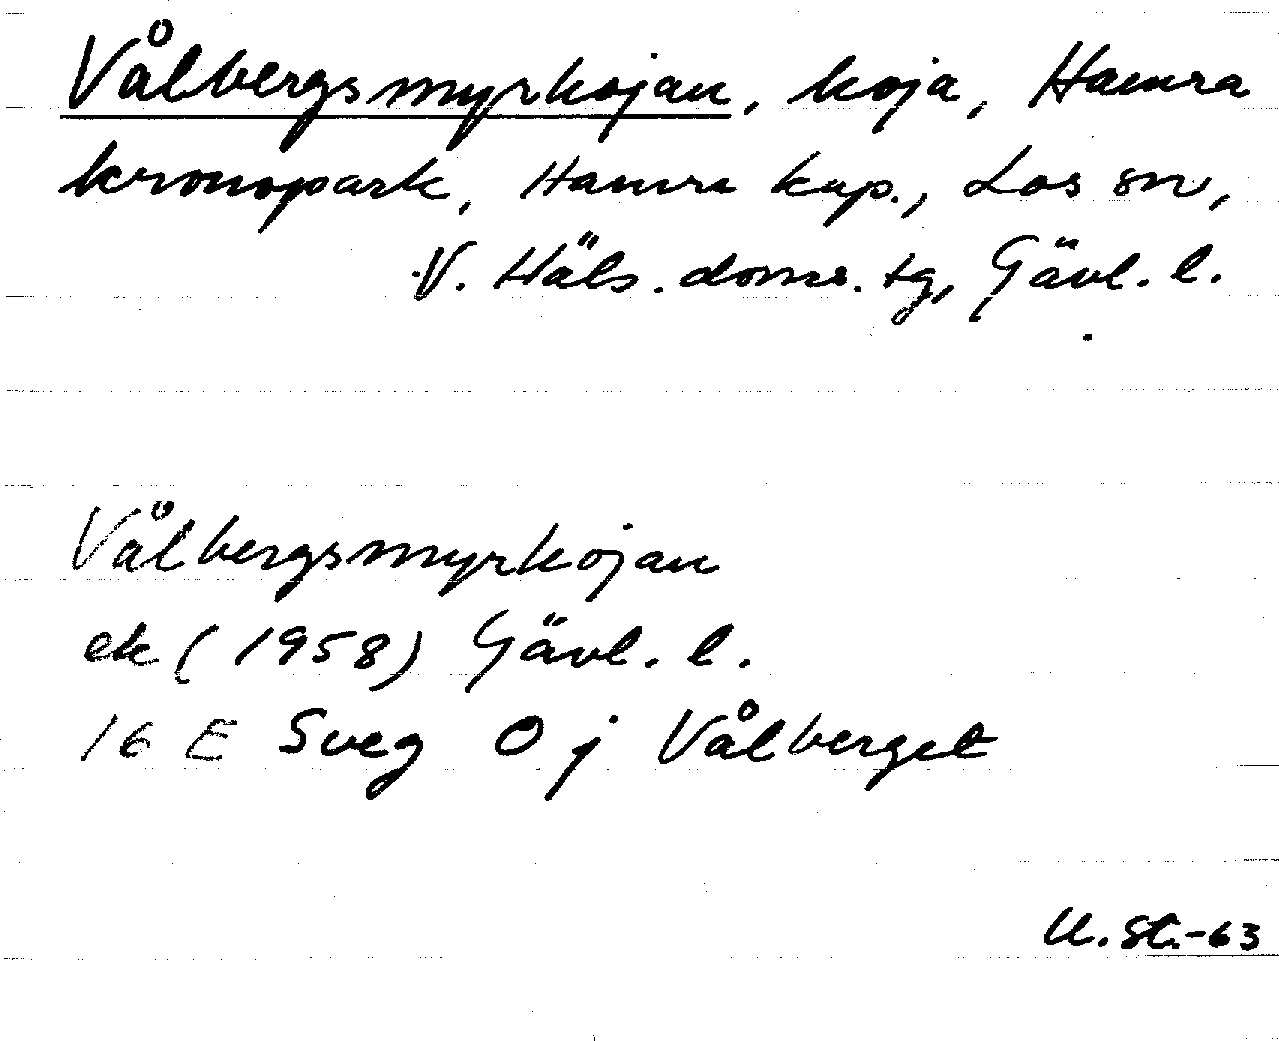 Vålbergsmyrkojan, koja, Hamra
kronopark, Hamra kap., Los sn,
V. Häls. doms. tg, Gävl. l.
Vålbergsmyrkojan
ek (1958) Gävl. l.
16 E Sveg O j Vålberget
U. St.-63